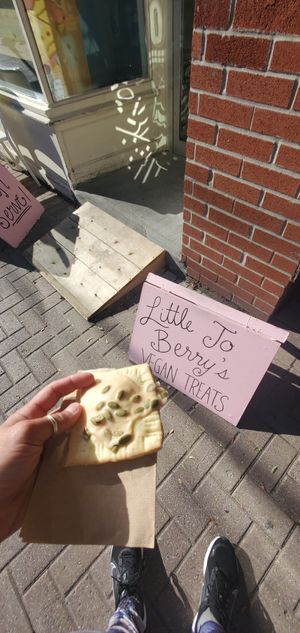 Serve
Little Jo
Berry's
VEGAN TREATS